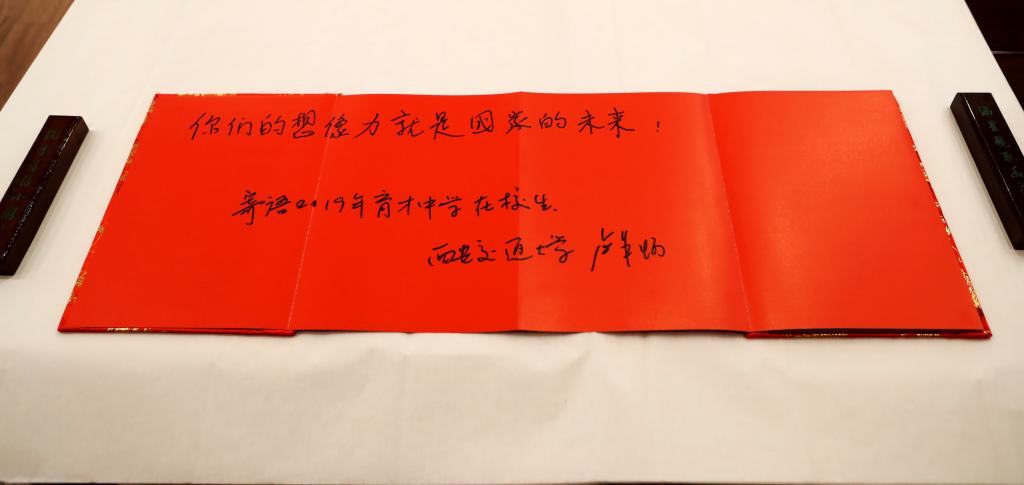 你们的想像力就是国家的未来！
寄语2019年育才中学在校生.
西安交通大学 卢秉恒